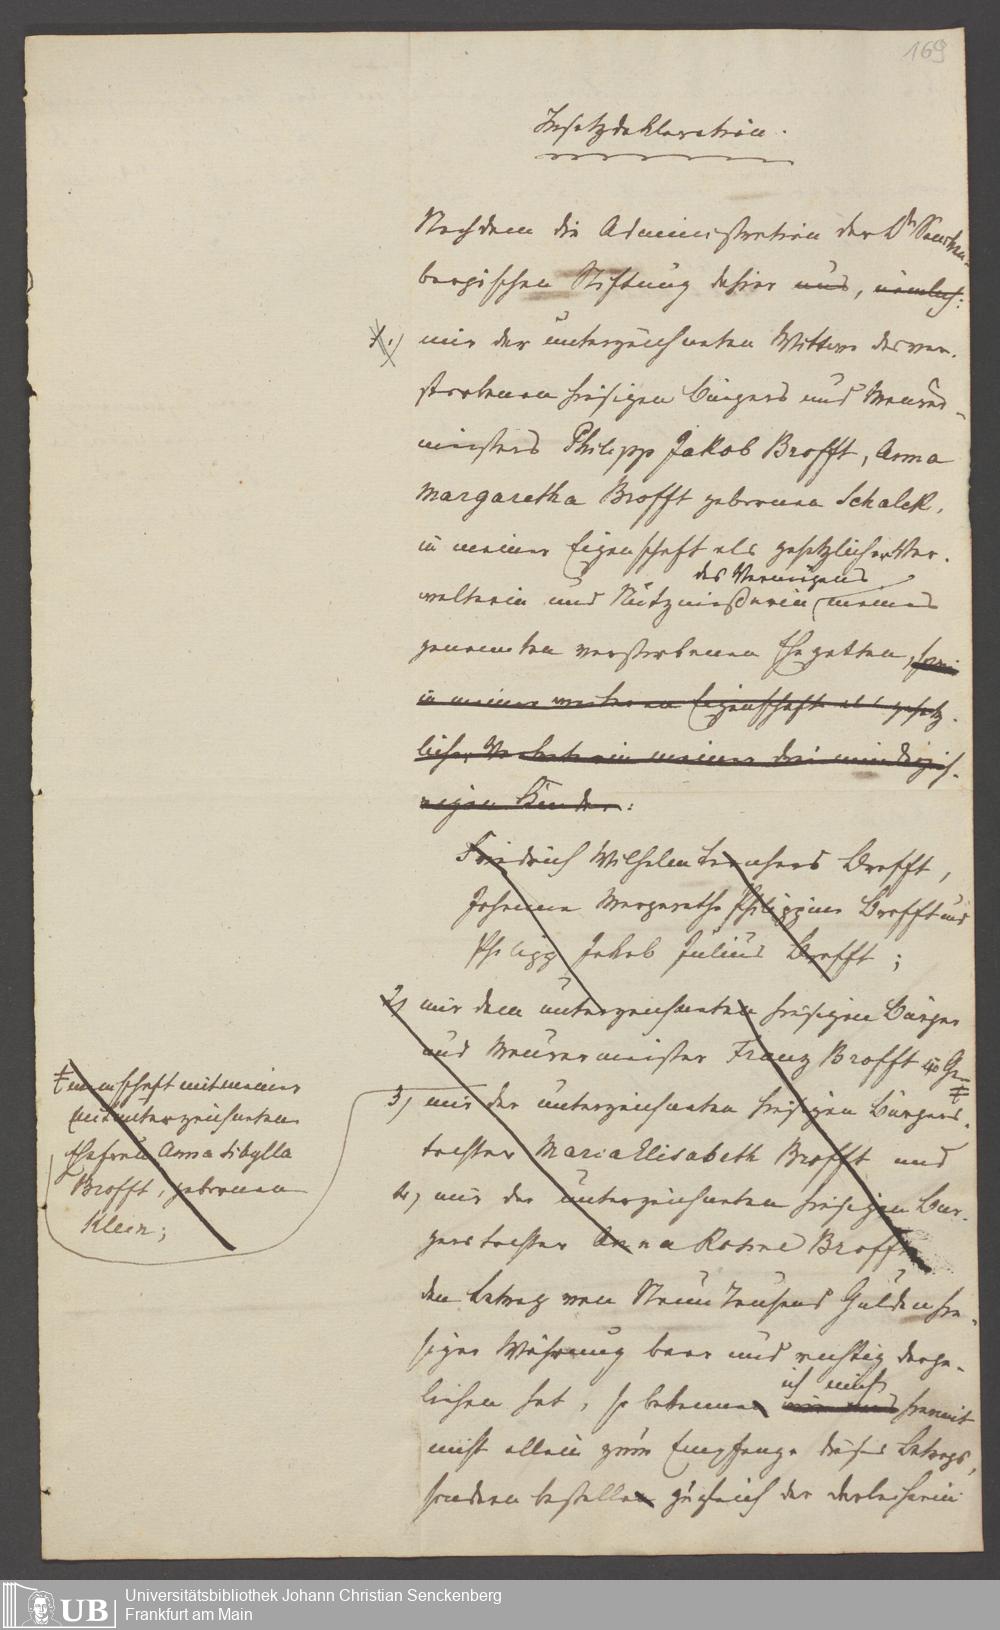 169
Insatzdeklaration.
Nachdem die Administration der Dr Sencken-
bergischen Stiftung dahier uns, nämlich:
1.) mir der unterzeichneten Wittwe des ver-
storbenen hiesigen Bürgers und Maurer-
meisters Philipp Jakob Brofft, Anna
Margaretha Brofft geborenen Schalck,
in meiner Eigenschaft als gesetzlicher Ver-
walterin und Nützniesserin des Vermögens meines
genannten verstorbenen Ehegatten, sowie
in meiner weiteren Eigenschaft als gesetz-
licher Vertreterin meiner drei minderjäh-
rigen Kinder:
Friedrich Wilhelm Bernhard Brofft,
Johanna Margaretha Philippine Brofft und
Philipp Jakob Julius Brofft;
2) mir dem unterzeichneten hiesigen Bürger
und Maurermeister Franz Brofft in Ge-
‡meinschaft mit meiner
mitunterzeichneten
Ehefrau Anna Sibylla
Brofft, geborenen
Klein;
3) mir der unterzeichneten hiesigen Bürgers-
tochter Maria Elisabeth Brofft und
4) mir der unterzeichneten hiesigen Bür-
gerstochter Anna Rosine Brofft
den Betrag von Neun Tausend Gulden hie-
siger Währung baar und richtig darge-
liehen hat, so bekennen wir uns ich mich hiermit
nicht allein zum Empfange dieses Betrags,
sondern bestellen zugleich der Darleiherin
Universitätsbibliothek Johann Christian Senckenberg
Frankfurt am Main
UB